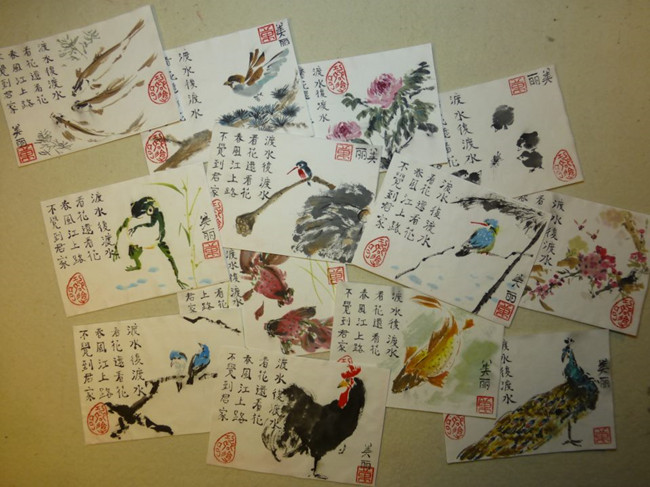 渡水後渡水
看花還看花
春風江上路
不覺到君家
美丽
美丽
渡水後渡水
美丽
渡水後渡水
渡水後渡水
看花還看花
春風江上路
不覺到君家
美丽
渡水後渡水
看花還看花
春風江上路
不覺到君家
美丽
渡水後渡水
看花還看花
春風江上路
不覺到君家
美丽
渡水後渡水
上路
渡水後渡水
看花還看花
春風江上路
不覺到君家
渡水後渡水
看花還看花
春風江上路
不覺到君家
美丽
渡水後渡水
看花還看花
春風江上路
不覺到君家
美丽
渡水後渡水
美丽